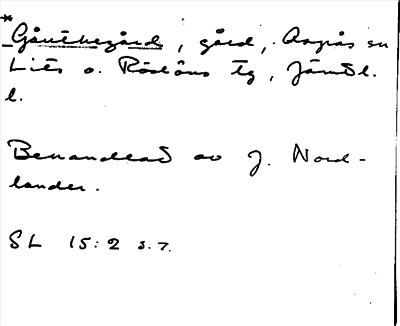 * Gåuthegård, gård, Aspås sn
Lits o. Rödöns tg, Jämtl.
l.
Behandlad av J. Nord-
lander.
SL 15:2 s. 7.